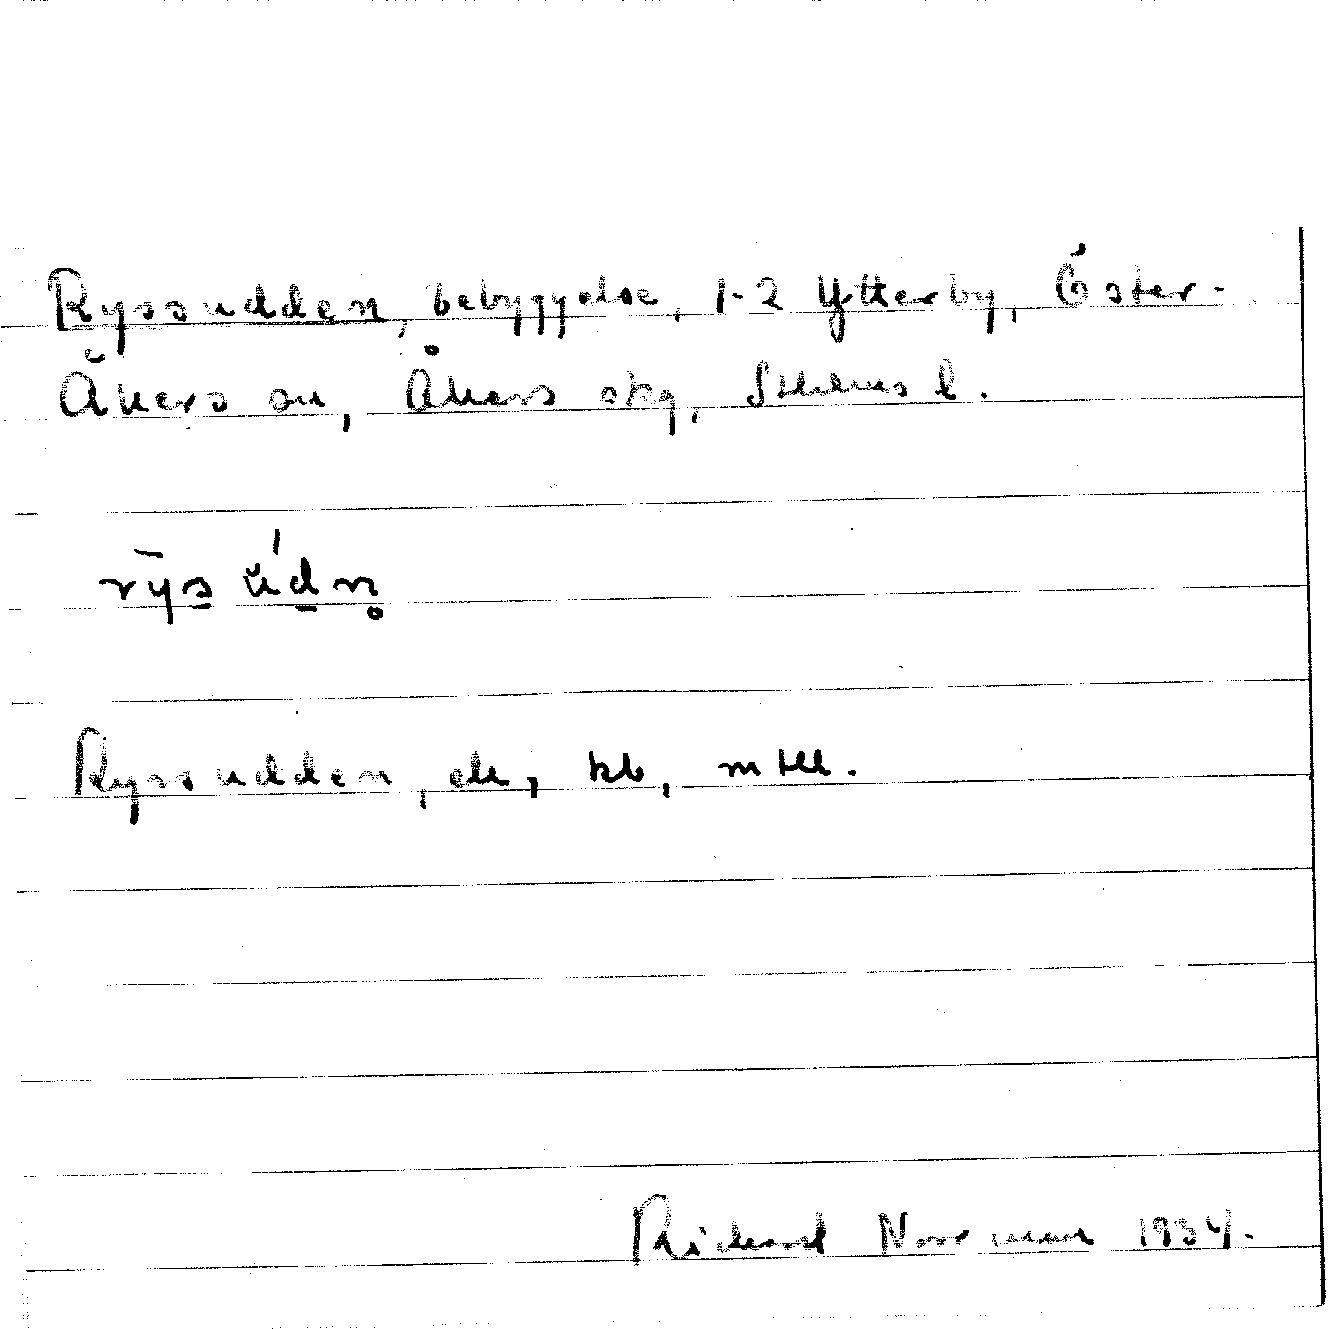 Ryssudden, bebyggelse, 1-2 Ytterby, Öster-
Åkers sn, Åkers skg, Sthlms l.
rȳs údn̥
Ryssudden, ek, kb, mtll.
Richard Norrman 1934.